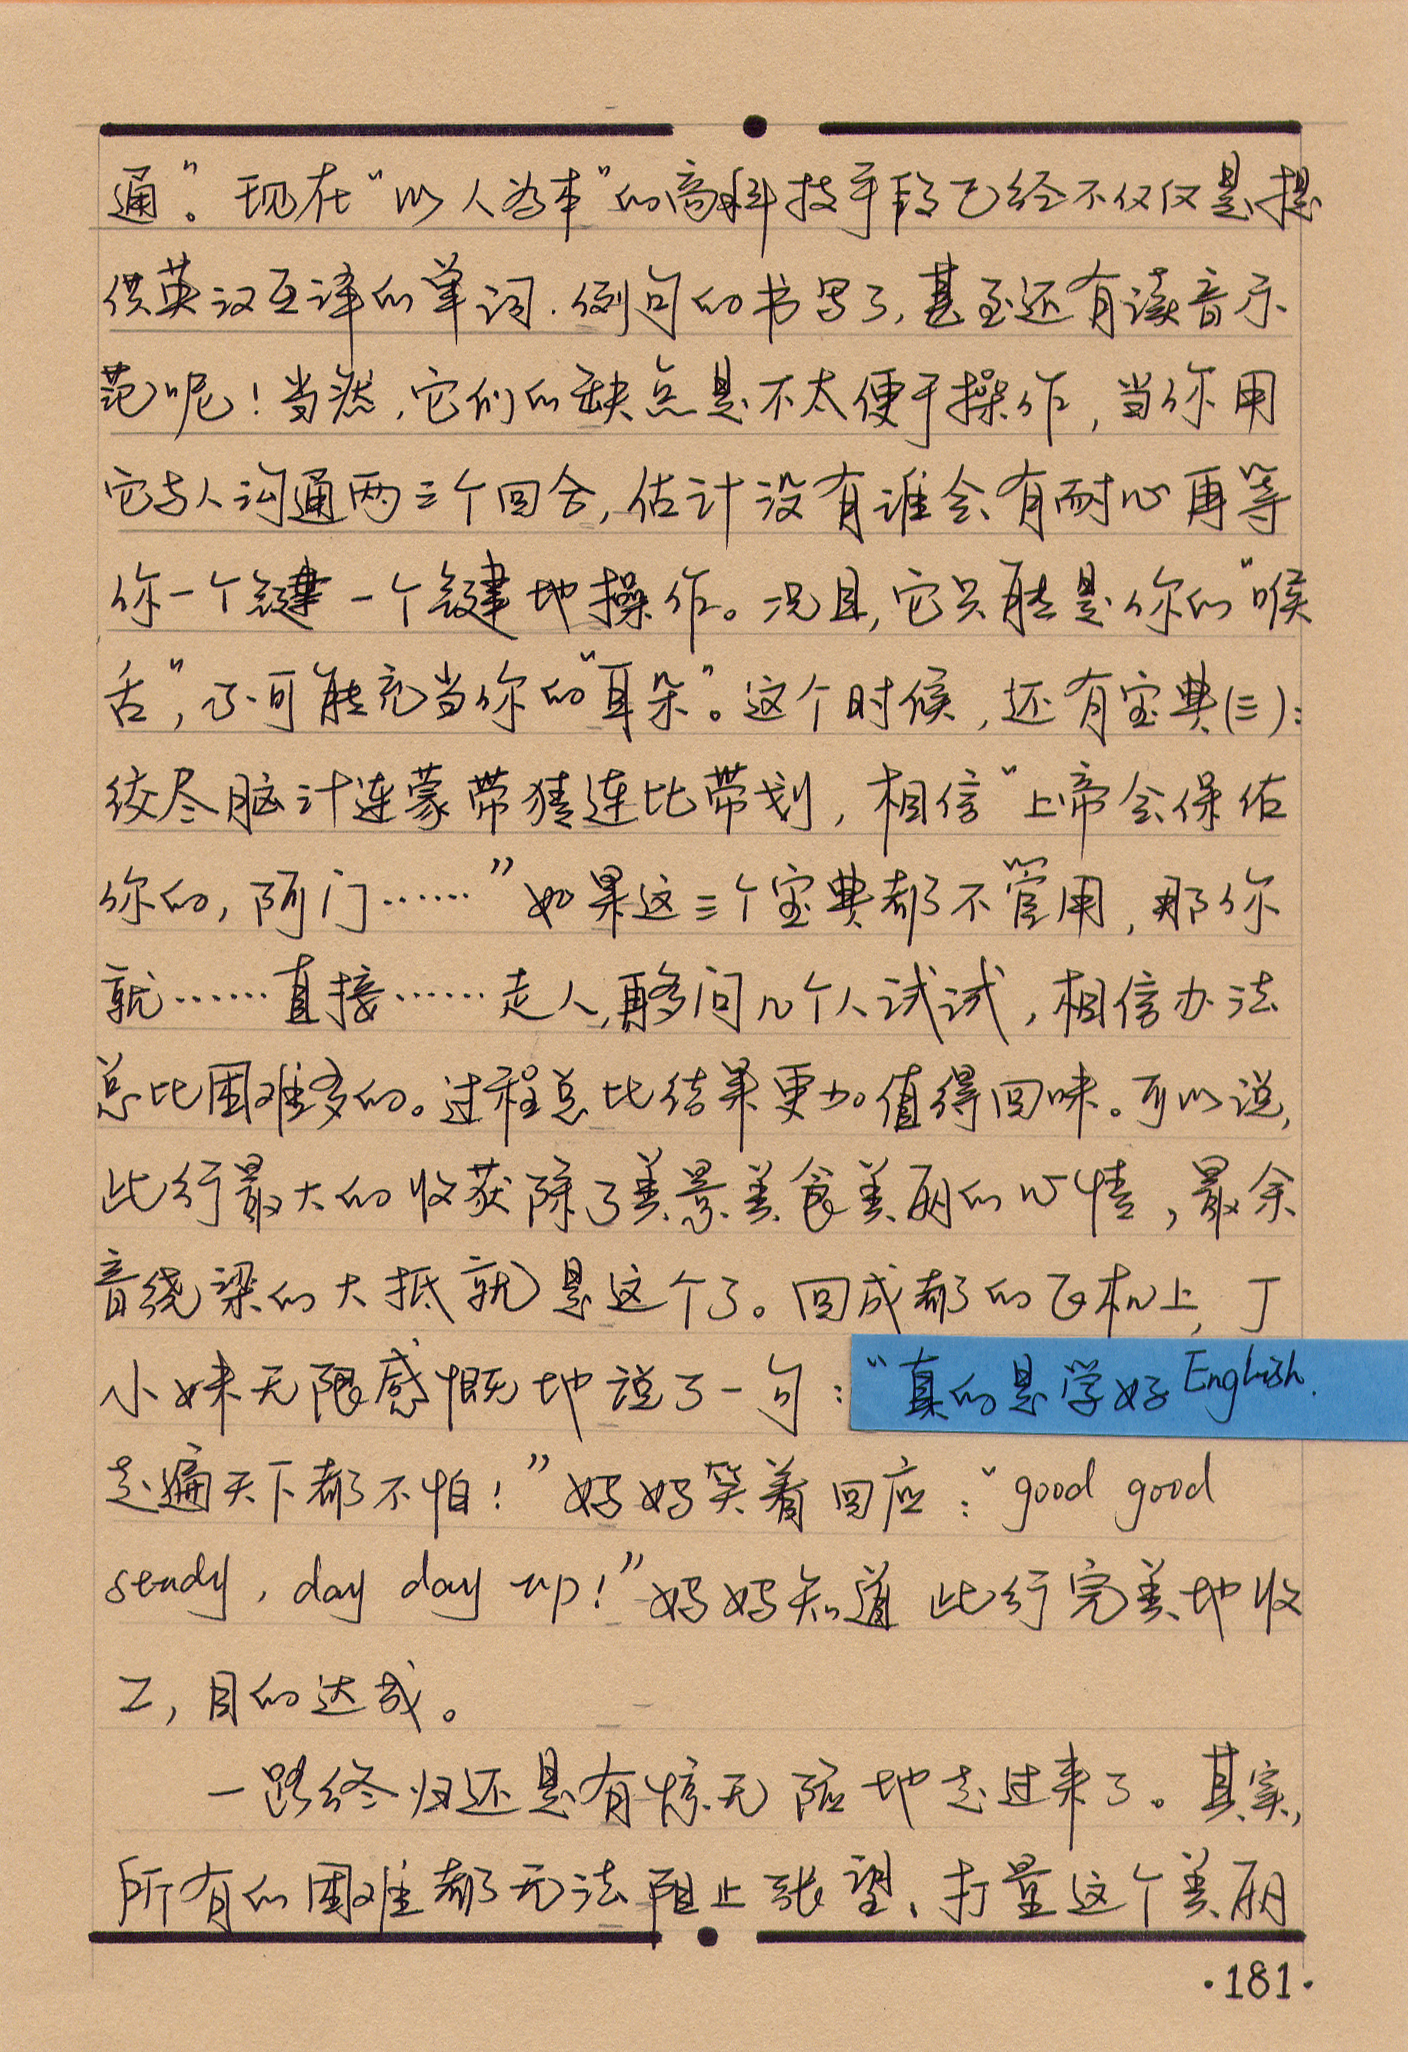 通”。现在“以人为本”的高科技手段已经不仅仅是提
供英汉互译的单词、例句的书写了，甚至还有读音示
范呢！当然，它们的缺点是不太便于操作，当你用
它与人沟通两三个回合，估计没有谁会有耐心再等
你一个键一个键地操作。况且，它只能是你的“喉
舌”，不可能充当你的“耳朵”。这个时候，还有宝典(三)：
绞尽脑汁连蒙带猜连比带划，相信“上帝会保佑
你的，阿门……”如果这三个宝典都不管用，那你
就……直接……走人，再多问几个人试试，相信办法
总比困难多的。过程总比结果更加值得回味。可以说，
此行最大的收获除了美景美食美丽的心情，最余
音绕梁的大抵就是这个了。回成都的飞机上，丁
小妹无限感慨地说了一句：“真的是学好English.
走遍天下都不怕！”妈妈笑着回应：“good good
study, day day up!”妈妈知道此行完美地收
工，目的达成。
一路终归还是有惊无险地走过来了。其实，
所有的困难都无法阻止张望、打量这个美丽
·181·